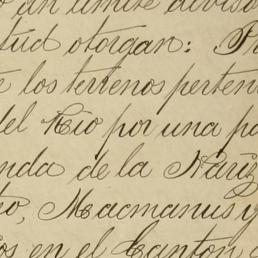 un límite diviso
tud otorgan: P
los terrenos perten
del Río por una pa
nda de la Nariz
to, Macmanus y
os en el Canton